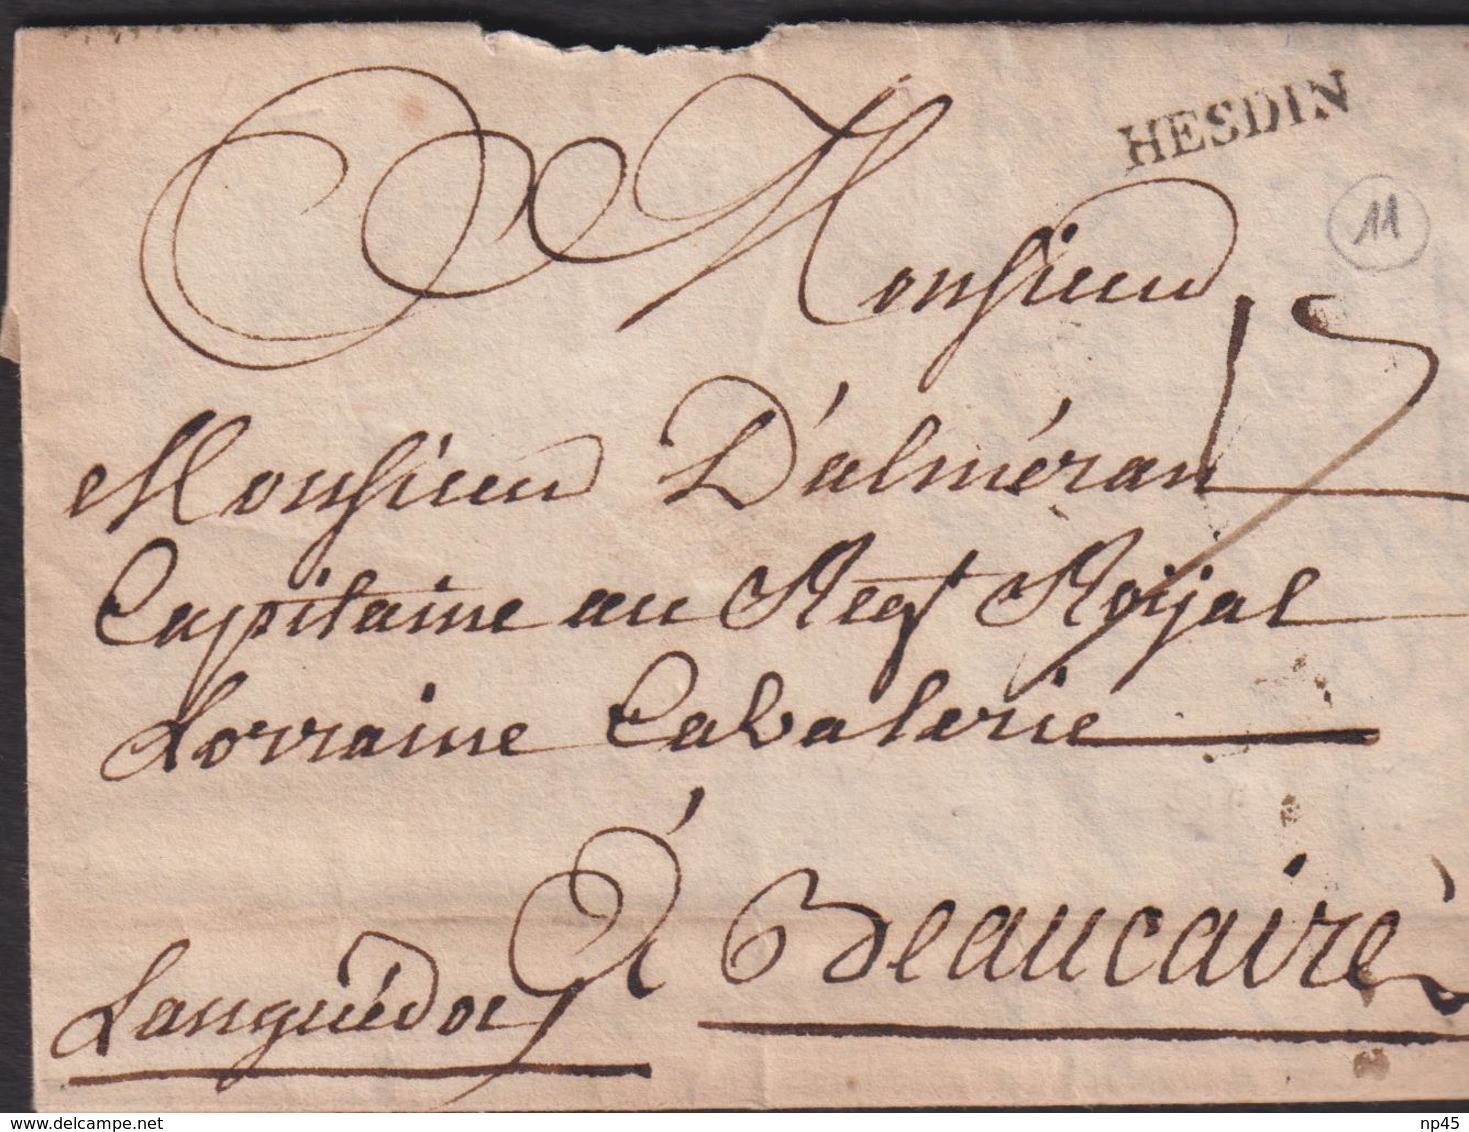 HESDIN
11
Monsieur
Monsieur D'alméran
Capitaine au Regt Roÿal
Lorraine Cavalerie
à Beaucaire
Languédoc
delcampe.net
np45